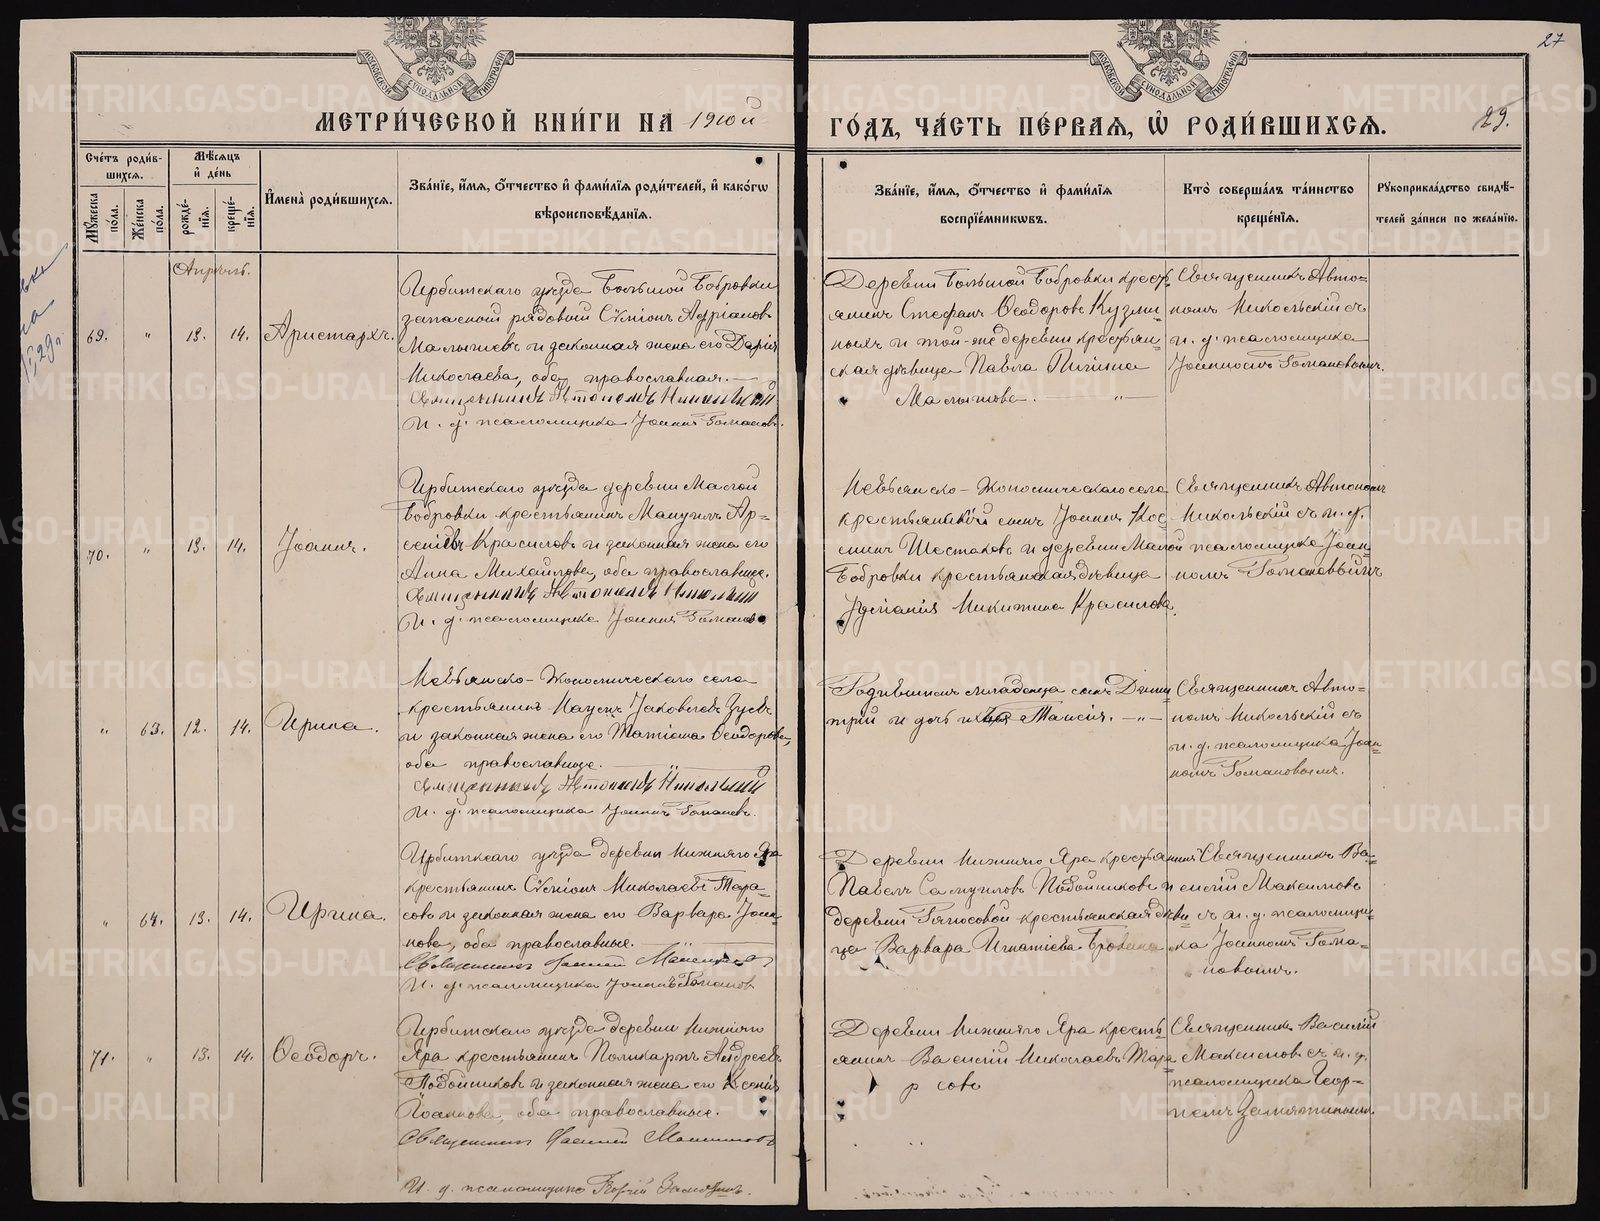 27
МОСКОВСКОЙ СѴНОДАЛЬНОЙ ТИПОГРАФІИ
МОСКОВСКОЙ СѴНОДАЛЬНОЙ ТИПОГРАФІИ
МЕТРИ́ЧЕСКОЙ КНИ́ГИ НА 1910й ГО́ДЪ, ЧА́СТЬ ПЕ́РВАЯ, Ѡ҆ РОДИ́ВШИХСѦ.
29.
Сче́тъ роди́в-
шихсѧ.
Мꙋ́жеска по́ла.
Же́нска по́ла.
Мѣ́сѧцъ и҆ де́нь
рожде́-
нїѧ.
креще́-
нїѧ.
И҆мена̀ роди́вшихсѧ.
Зва́нїе, и҆́мѧ, ѻ҆́тчество и҆ фами́лїѧ роди́телей, и҆ како́гѡ
вѣроисповѣ́данїѧ.
Зва́нїе, и҆́мѧ, ѻ҆́тчество и҆ фами́лїѧ
воспрїе́мникѡвъ.
Кто̀ соверша́лъ та́инство
креще́нїѧ.
Рꙋкоприкла́дство свидѣ́-
телей за́писи по жела́нїю.
Апрѣль.
69. " 13. 14. Аристархъ.
Ирбитскаго уѣзда Большой Бобровки
запасной рядовой Сѵмеонъ Адріановъ
Малышевъ и законная жена его Дарія
Николаева, оба православная.
Священникъ Автономъ Никольскій
И. д. псаломщика Іоаннъ Романовъ.
Деревни Большой Бобровки кресть-
янинъ Стефанъ Ѳеодоровъ Кузми-
ныхъ и той-же деревни крестьян-
ская дѣвица Павла
Малышева. — " —
Священникъ Авто-
номъ Никольскій съ
и. д. псаломщика
Іоанномъ Романовымъ.
70. " 13. 14. Іоаннъ.
Ирбитскаго уѣзда деревни Малой
Бобровки крестьянинъ Мануилъ Ар-
сеніевъ Красиловъ и законная жена его
Анна Михайлова, оба православные.
Священникъ Автономъ Никольскій
И. д. псаломщика Іоаннъ Романовъ
Невьянско-Экономическаго села
крестьянскій сынъ Іоаннъ Кос-
минъ Шестаковъ и деревни Малой
Бобровки крестьянская дѣвица
Іуліанія Никитина Красилова.
Священникъ Автономъ
Никольскій съ и. д.
псаломщика Іоан-
номъ Романовымъ
" 63. 12. 14. Ирина.
Невьянско-Экономическаго села
крестьянинъ Наумъ Іаковлевъ Зуевъ
и законная жена его Татіана Ѳеодорова,
оба православные.
Священникъ Автономъ Никольскій
И. д. псаломщика Іоаннъ Романовъ.
Родившихъ младенца сынъ Дими-
трій и дочь ихъ Таисія. — " —
Священникъ Авто-
номъ Никольскій съ
и. д. псаломщика Іоан-
номъ Романовымъ.
" 64. 13. 14. Ирина.
Ирбитскаго уѣзда деревни Нижняго Яра
крестьянинъ Сѵмеонъ Николаевъ Тара-
совъ и законная жена его Варвара Іоан-
нова, оба православные.
Священникъ Василій Максимовъ
И. д. псаломщика Іоаннъ Романовъ
Деревни Нижняго Яра крестьянинъ
Павелъ Самуиловъ Подойниковъ и
деревни Ряпосовой крестьянская дѣви-
ца Варвара Игнатіева
Священникъ Ва-
силій Максимовъ
съ и. д. псаломщи-
ка Іоанномъ Рома-
новымъ.
71. " 13. 14. Ѳеодоръ.
Ирбитскаго уѣзда деревни Нижняго
Яра крестьянинъ Поликарпъ Андреевъ
Подойниковъ и законная жена его Ксенія
Іоаннова, оба православные.
Священникъ Василій Максимовъ
И. д. псаломщика Георгій Замятинъ.
Деревни Нижняго Яра кресть-
янинъ Василій Николаевъ Тара-
совъ
Священникъ Василій
Максимовъ съ и. д.
псаломщика Геор-
гіемъ Замятинымъ.
METRIKI.GASO-URAL.RU